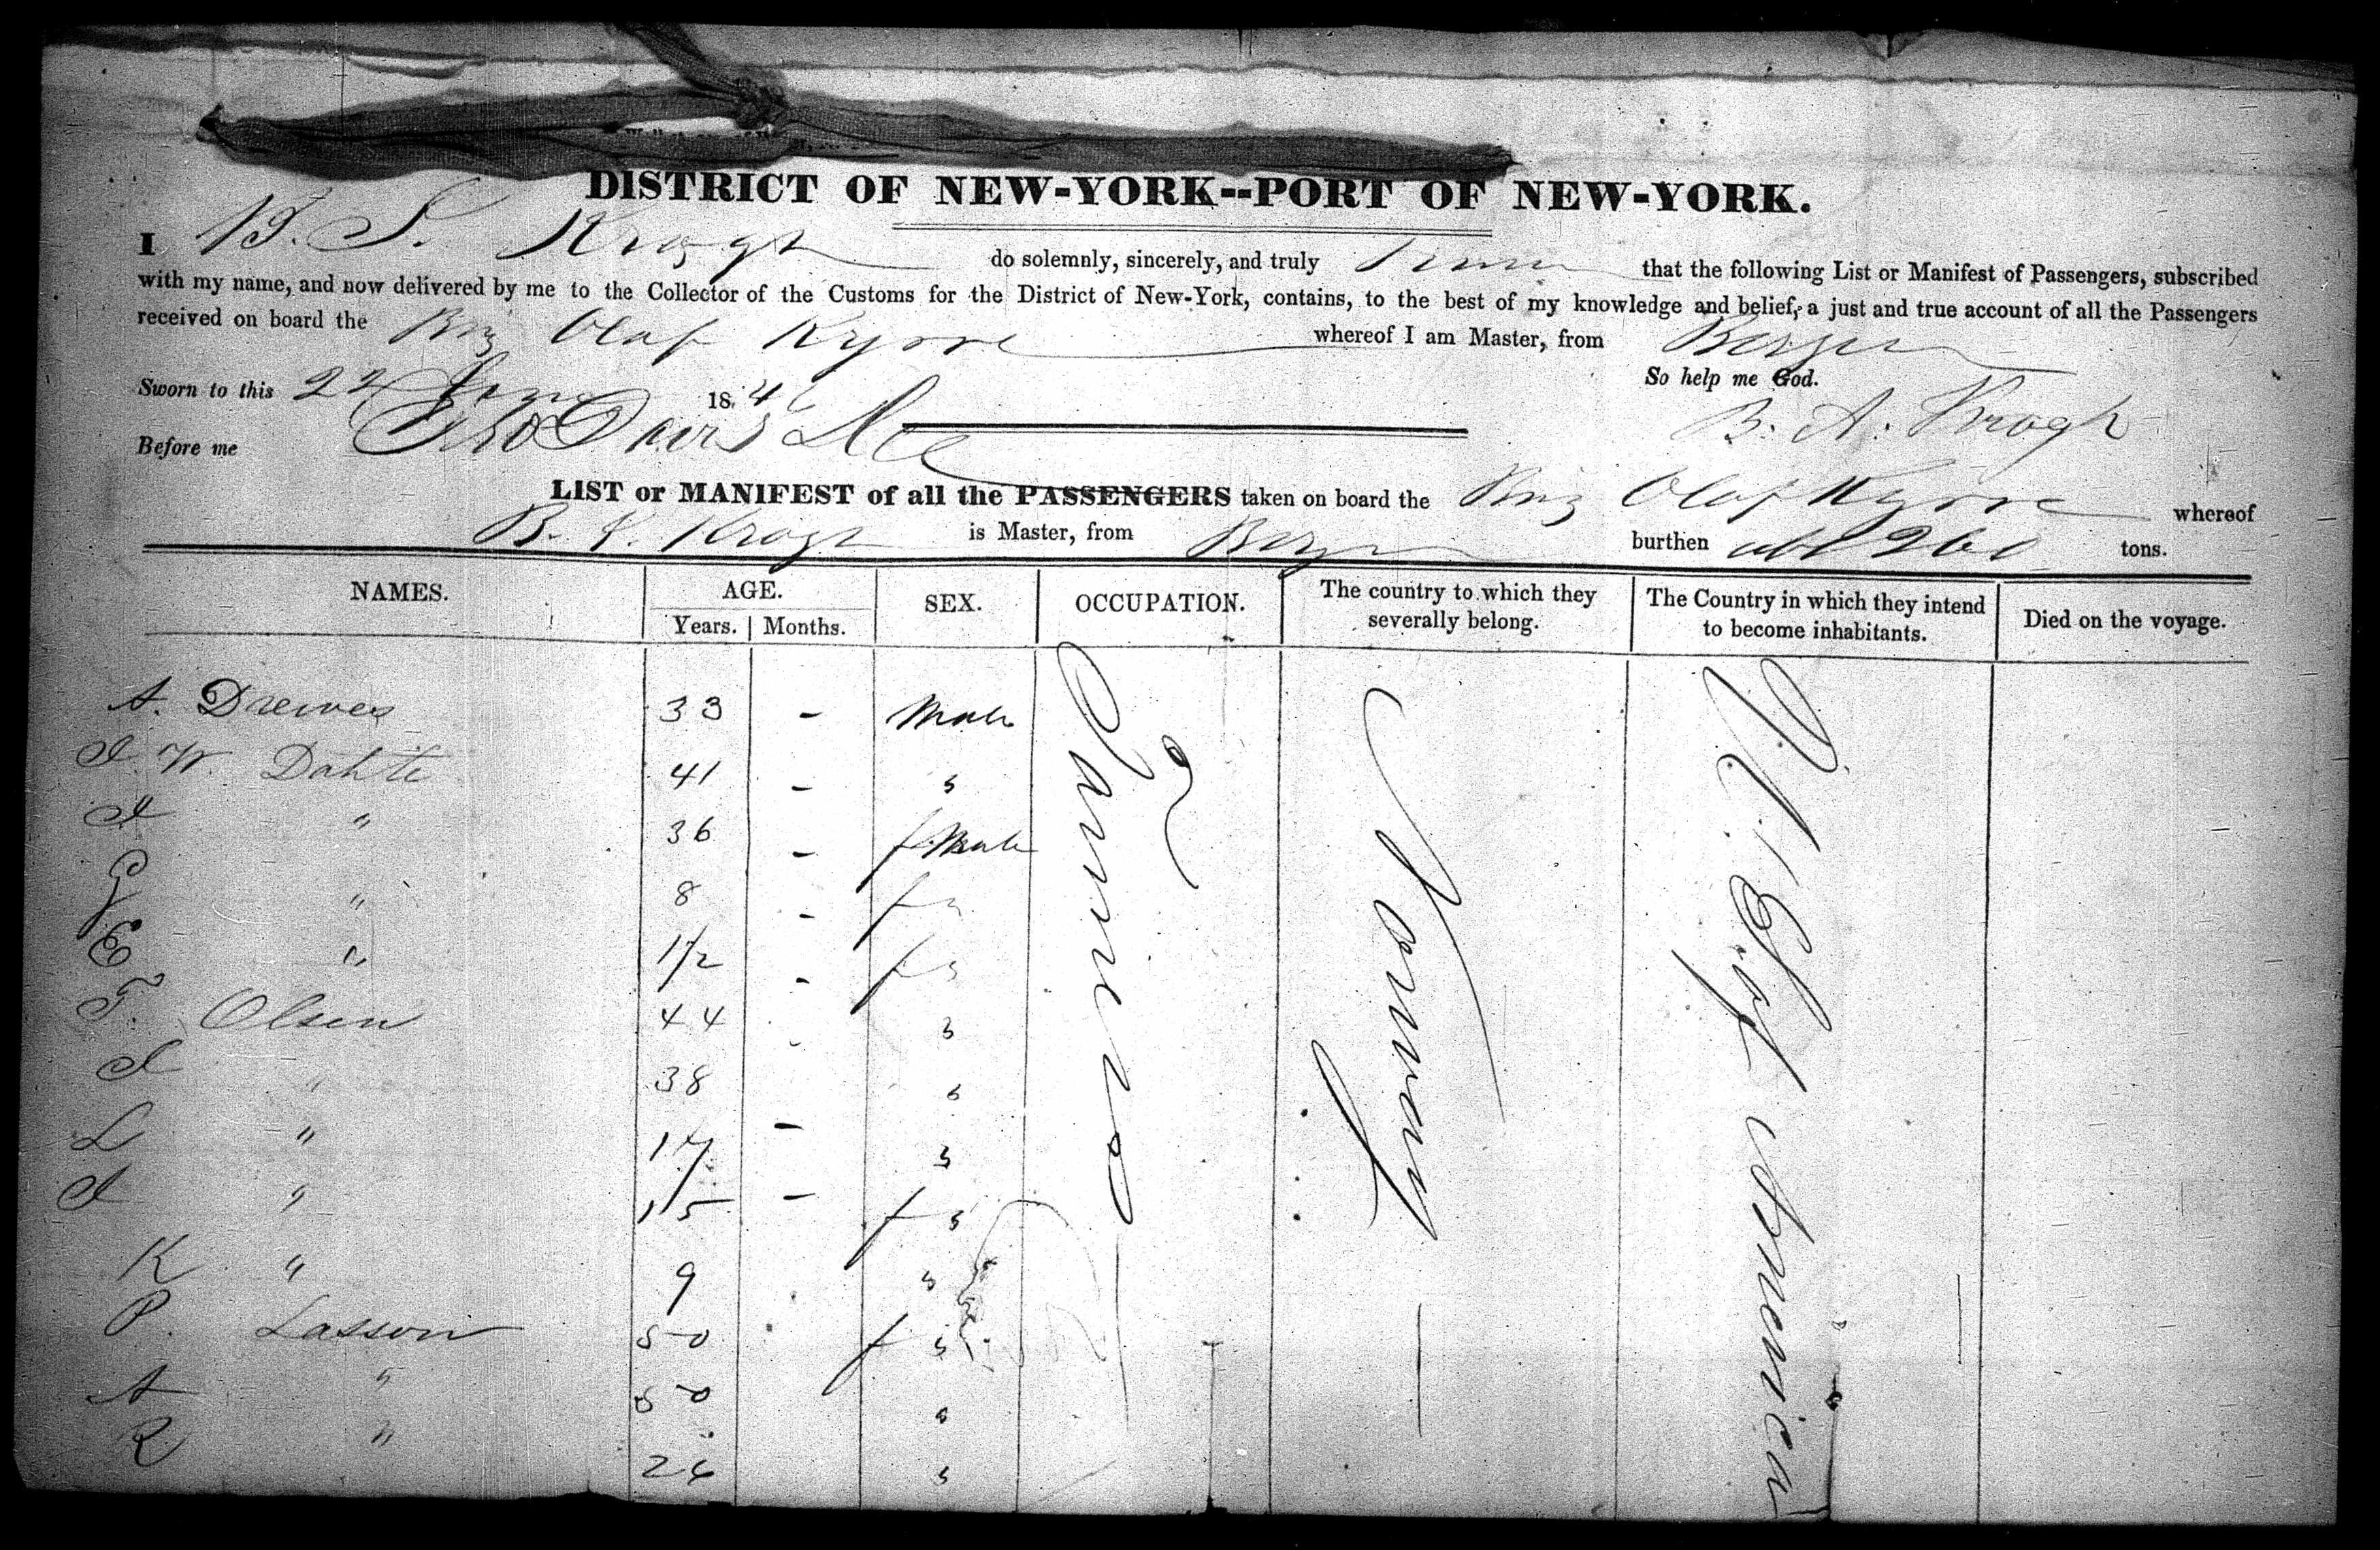 DISTRICT OF NEW-YORK--PORT OF NEW-YORK.
I B. S. Krogh do solemnly, sincerely, and truly that the following List or Manifest of Passengers, subscribed
with my name, and now delivered by me to the Collector of the Customs for the District of New-York, contains, to the best of my knowledge and belief, a just and true account of all the Passengers
received on board the Brig Olaf Kyrre whereof I am Master, from Bergen
So help me God.
Sworn to this 22 184
B. A. Krogh
Before me
LIST or MANIFEST of all the PASSENGERS taken on board the Brig Olaf Kyrre whereof
B. Krogh is Master, from Bergen burthen 260 tons.
NAMES. AGE. SEX. OCCUPATION. The country to which they severally belong. The Country in which they intend to become inhabitants. Died on the voyage.
Years. Months.
A. Drewes 33 - Male
I. W. Dahte 41 - "
I " 36 - f Male
G " 8 - f "
E " 1/2 - f "
T. Olsen 44 - "
I " 38 "
L " 17 - "
I " 15 - f "
K " 9 "
P. Lasson 50 f "
A " 50 "
R " 26 "
Farmers
Norway
N. America